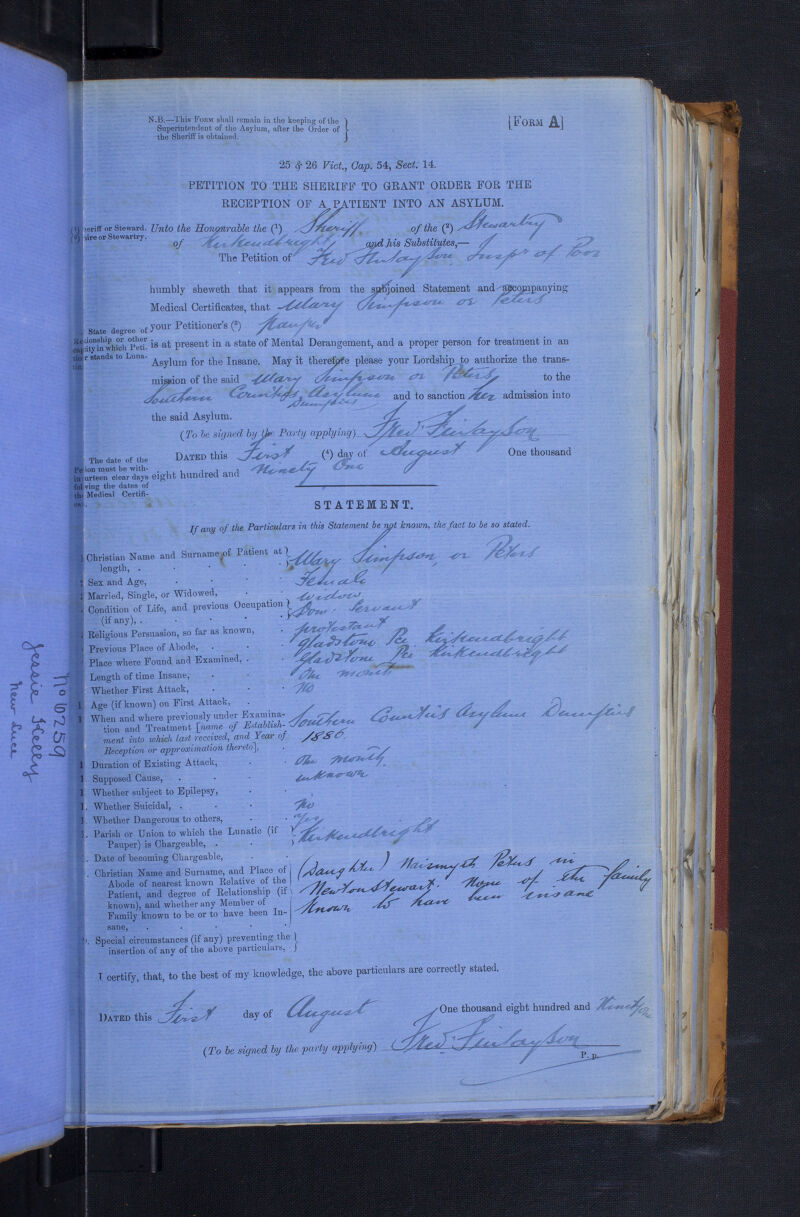 N.B.—This Form shall remain in the keeping of the
Superintendent of the Asylum, after the Order of
the Sheriff is obtained.
[Form A]
25 & 26 Vict., Cap. 54, Sect. 14.
PETITION TO THE SHERIFF TO GRANT ORDER FOR THE
RECEPTION OF A PATIENT INTO AN ASYLUM.
Sheriff or Steward.
Shire or Stewartry.
Unto the Honourable the (1) Sheriff of the (2) Stewartry
of Kirkcudbright and his Substitutes,—
The Petition of Fred Finlayson, Inspr of Poor
humbly sheweth that it appears from the subjoined Statement and accompanying
Medical Certificates, that Mary Simpson or Peters
State degree of
Relationship or other
capacity in which Peti-
tioner stands to Luna-
tic.
your Petitioner's (3) Pauper
is at present in a state of Mental Derangement, and a proper person for treatment in an
Asylum for the Insane. May it therefore please your Lordship to authorize the trans-
mission of the said Mary Simpson or Peters to the
Southern Counties Asylum Dumfries and to sanction her admission into
the said Asylum.
(To be signed by the Party applying) Fred Finlayson
The date of the
Petition must be with-
in fourteen clear days
following the dates of
the Medical Certifi-
Dated this First (4) day of August One thousand
eight hundred and Ninety One
STATEMENT.
If any of the Particulars in this Statement be not known, the fact to be so stated.
Christian Name and Surname of Patient at length, . Mary Simpson, or Peters
Sex and Age, Female
Married, Single, or Widowed, Widow
Condition of Life, and previous Occupation (if any), . Dom. Servant
Religious Persuasion, so far as known, protestant
Previous Place of Abode, Gladstone Pce Kirkcudbright
Place where Found and Examined, . Gladstone Pce Kirkcudbright
Length of time Insane, One month
Whether First Attack, No
Age (if known) on First Attack,
When and where previously under Examina-
tion and Treatment [name of Establish-
ment into which last received, and Year of
Reception or approximation thereto],
Southern Counties Asylum Dumfries
1886
Duration of Existing Attack, One month
Supposed Cause, unknown
Whether subject to Epilepsy,
Whether Suicidal, . No
Whether Dangerous to others, Yes
Parish or Union to which the Lunatic (if
Pauper) is Chargeable, . Kirkcudbright
Date of becoming Chargeable,
Christian Name and Surname, and Place of
Abode of nearest known Relative of the
Patient, and degree of Relationship (if
known), and whether any Member of
Family known to be or to have been In-
sane,
(Daughter) Naismyth Peters in
Newton Stewart. None of the family
known to have been insane
Special circumstances (if any) preventing the
insertion of any of the above particulars,
I certify, that, to the best of my knowledge, the above particulars are correctly stated.
Dated this First day of August One thousand eight hundred and Ninety One
(To be signed by the party applying) Fred Finlayson
P. p.
No 6259
Jessie Kelly
New Luce